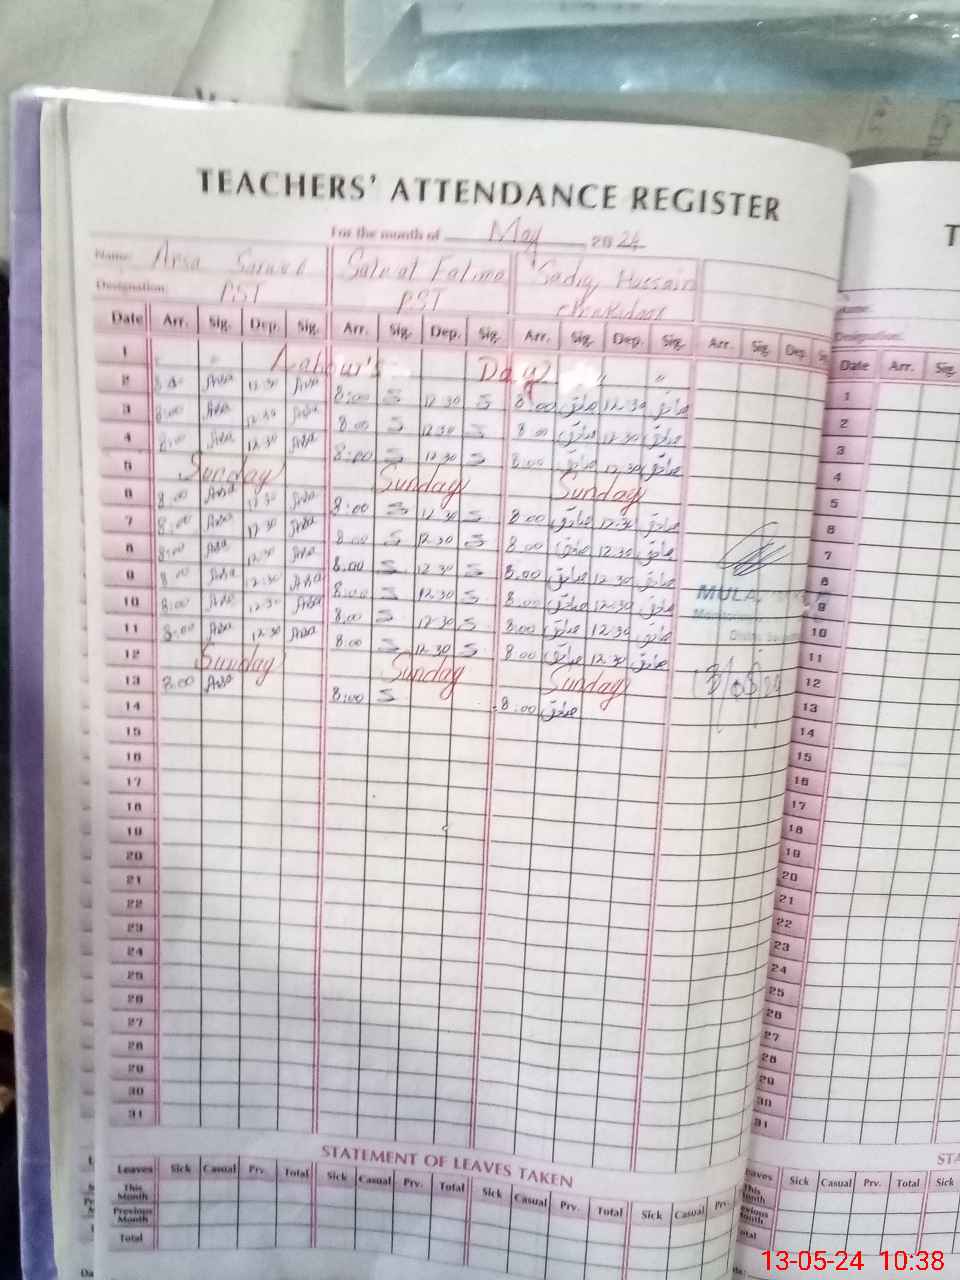 TEACHERS' ATTENDANCE REGISTER
For the month of May 2024
Name: Arsa Salwat Fatima Sadiq Hussain
Designation: PST PST
Date Arr. Sig. Dep. Sig. Arr. Sig. Dep. Sig. Arr. Sig. Dep. Sig. Arr. Sig. Dep. Sig.
1 Labour's Day
2 8:00 Arsa 12:30 Arsa 8:00 S 12:30 S 8:00 صادق 12:30 صادق
3 8:00 Arsa 12:30 Arsa 8:00 S 12:30 S 8:00 صادق 12:30 صادق
4 8:00 Arsa 12:30 Arsa 8:00 S 12:30 S 8:00 صادق 12:30 صادق
5 Sunday Sunday Sunday
6 8:00 Arsa 12:30 Arsa 8:00 S 12:30 S 8:00 صادق 12:30 صادق
7 8:00 Arsa 12:30 Arsa 8:00 S 12:30 S 8:00 صادق 12:30 صادق
8 8:00 Arsa 12:30 Arsa 8:00 S 12:30 S 8:00 صادق 12:30 صادق
9 8:00 Arsa 12:30 Arsa 8:00 S 12:30 S 8:00 صادق 12:30 صادق
10 8:00 Arsa 12:30 Arsa 8:00 S 12:30 S 8:00 صادق 12:30 صادق
11 8:00 Arsa 12:30 Arsa 8:00 S 12:30 S 8:00 صادق 12:30 صادق
12 Sunday Sunday Sunday
13 8:00 Arsa 8:00 S 8:00 صادق
14
15
16
17
18
19
20
21
22
23
24
25
26
27
28
29
30
31
STATEMENT OF LEAVES TAKEN
Leaves Sick Casual Prv. Total Sick Casual Prv. Total Sick Casual Prv. Total Sick Casual Prv.
This Month
Previous Month
Total
T
Name:
Designation:
Date Arr. Sig.
1
2
3
4
5
6
7
8
9
10
11
12
13
14
15
16
17
18
19
20
21
22
23
24
25
26
27
28
29
30
31
STA
Sick Casual Prv. Total Sick
13-05-24 10:38